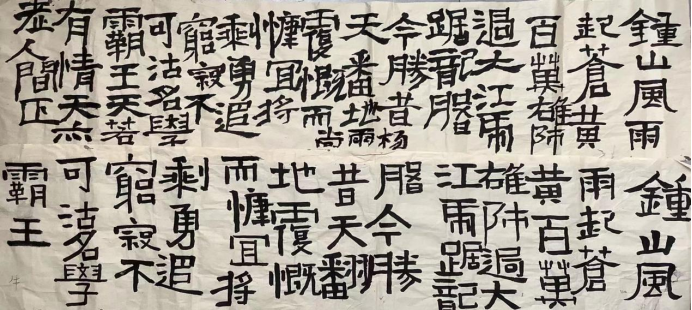 鍾山風雨
起蒼黄
百萬雄師
過大江虎
踞龍盤
今勝昔杨
天番地雨
覆慨而尚
慷宜将
剩勇追
窮寇不
可沽名學
霸王天若
有情天亦
老人間正
鍾山風
雨起蒼
黄百萬
雄师過大
江虎踞龍
盤今勝
昔天翻
地覆慨
而慷宜将
剩勇追
窮寇不
可沽名學
霸王